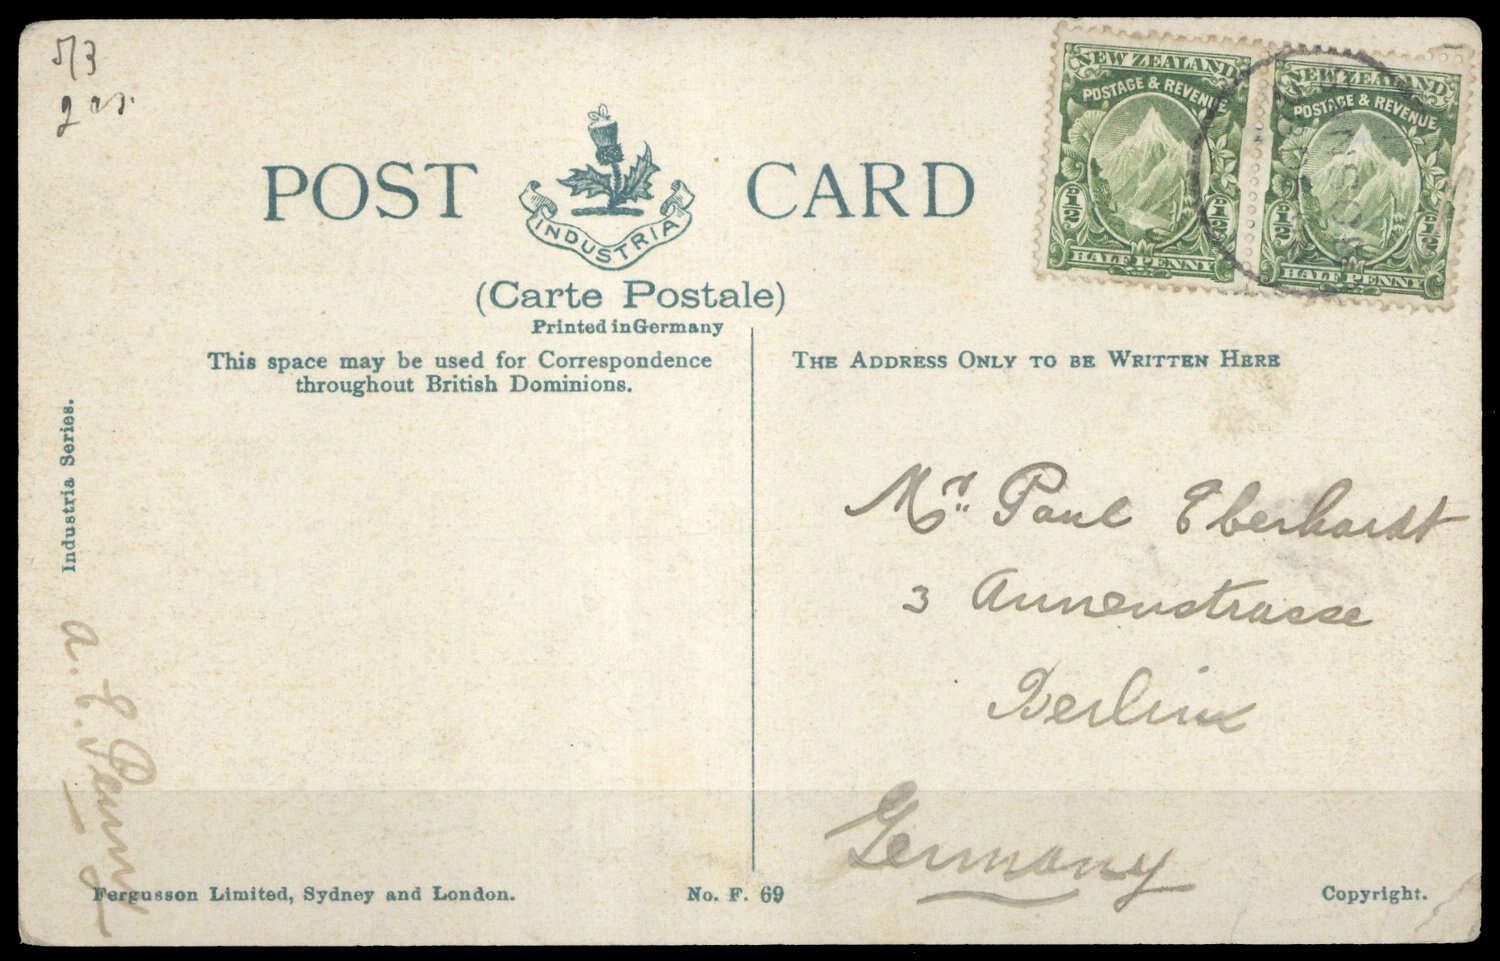 5/3
POST CARD
INDUSTRIA
(Carte Postale)
Printed in Germany
This space may be used for Correspondence
throughout British Dominions.
THE ADDRESS ONLY TO BE WRITTEN HERE
NEW ZEALAND
POSTAGE & REVENUE
D 1/2 D 1/2
HALF PENNY
NEW ZEALAND
POSTAGE & REVENUE
D 1/2 D 1/2
HALF PENNY
Mr. Paul Eberhardt
3 Annenstrasse
Berlin
Germany
Industria Series.
A. E. Penny
Fergusson Limited, Sydney and London.
No. F. 69
Copyright.